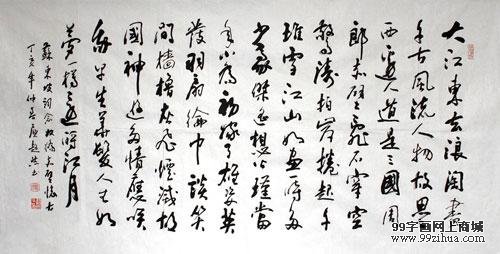 大江東去浪淘盡
千古風流人物故壘
西邊人道是三國周
郎赤壁亂石穿空
驚濤拍岸捲起千
堆雪江山如畫一時多
少豪傑遙想公瑾當
年小喬初嫁了雄姿英
發羽扇綸巾談笑
間檣櫓灰飛煙滅故
國神遊多情應笑
我早生華髮人生如
夢一樽還酹江月
蘇東坡詞念奴嬌赤壁懷古
丁亥年仲春
99字画网上商城
www.99zihua.com